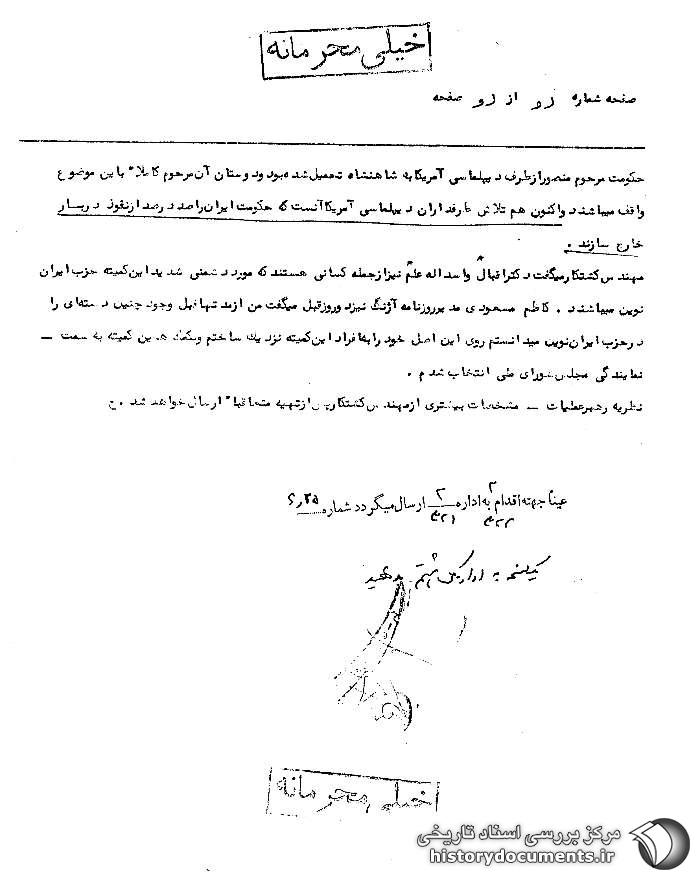 خیلی محرمانه
صفحه شماره دو از دو صفحه
حکومت مرحوم منصور ازطرف دیپلماسی آمریکا به شاهنشاه تحمیل شده بود ودوستان آن مرحوم کاملا" باین موضوع
واقف میباشند واکنون هم تلاش طرفداران دیپلماسی آمریکا آنست که حکومت ایران راصددرصد ازنفوذ دربار
خارج سازند .
مهندس کشتکار میگفت دکتراقبال واسداله علم نیز ازجمله کسانی هستند که مورد دشمنی شدید این کمیته حزب ایران
نوین میباشند . کاظم مسعودی مدیر روزنامه آژنگ نیز دوروز قبل میگفت من ازمدتها قبل وجود چنین دسته‌ای را
درحزب ایران نوین میدانستم روی این اصل خود را به افراد این کمیته نزدیک ساختم وبکمک همین کمیته به سمت –
نمایندگی مجلس شورای ملی انتخاب شدم .
نظریه رهبرعملیات – مشخصات بیشتری ازمهندس کشتکار پس ازتهیه متعاقبا" ارسال خواهد شد . ح
عیناً جهت اقدام به اداره ارسال میگردد شماره
یکنسخه به اداره کل هشتم بدهید
خیلی محرمانه
مرکز بررسی اسناد تاریخی
historydocuments.ir